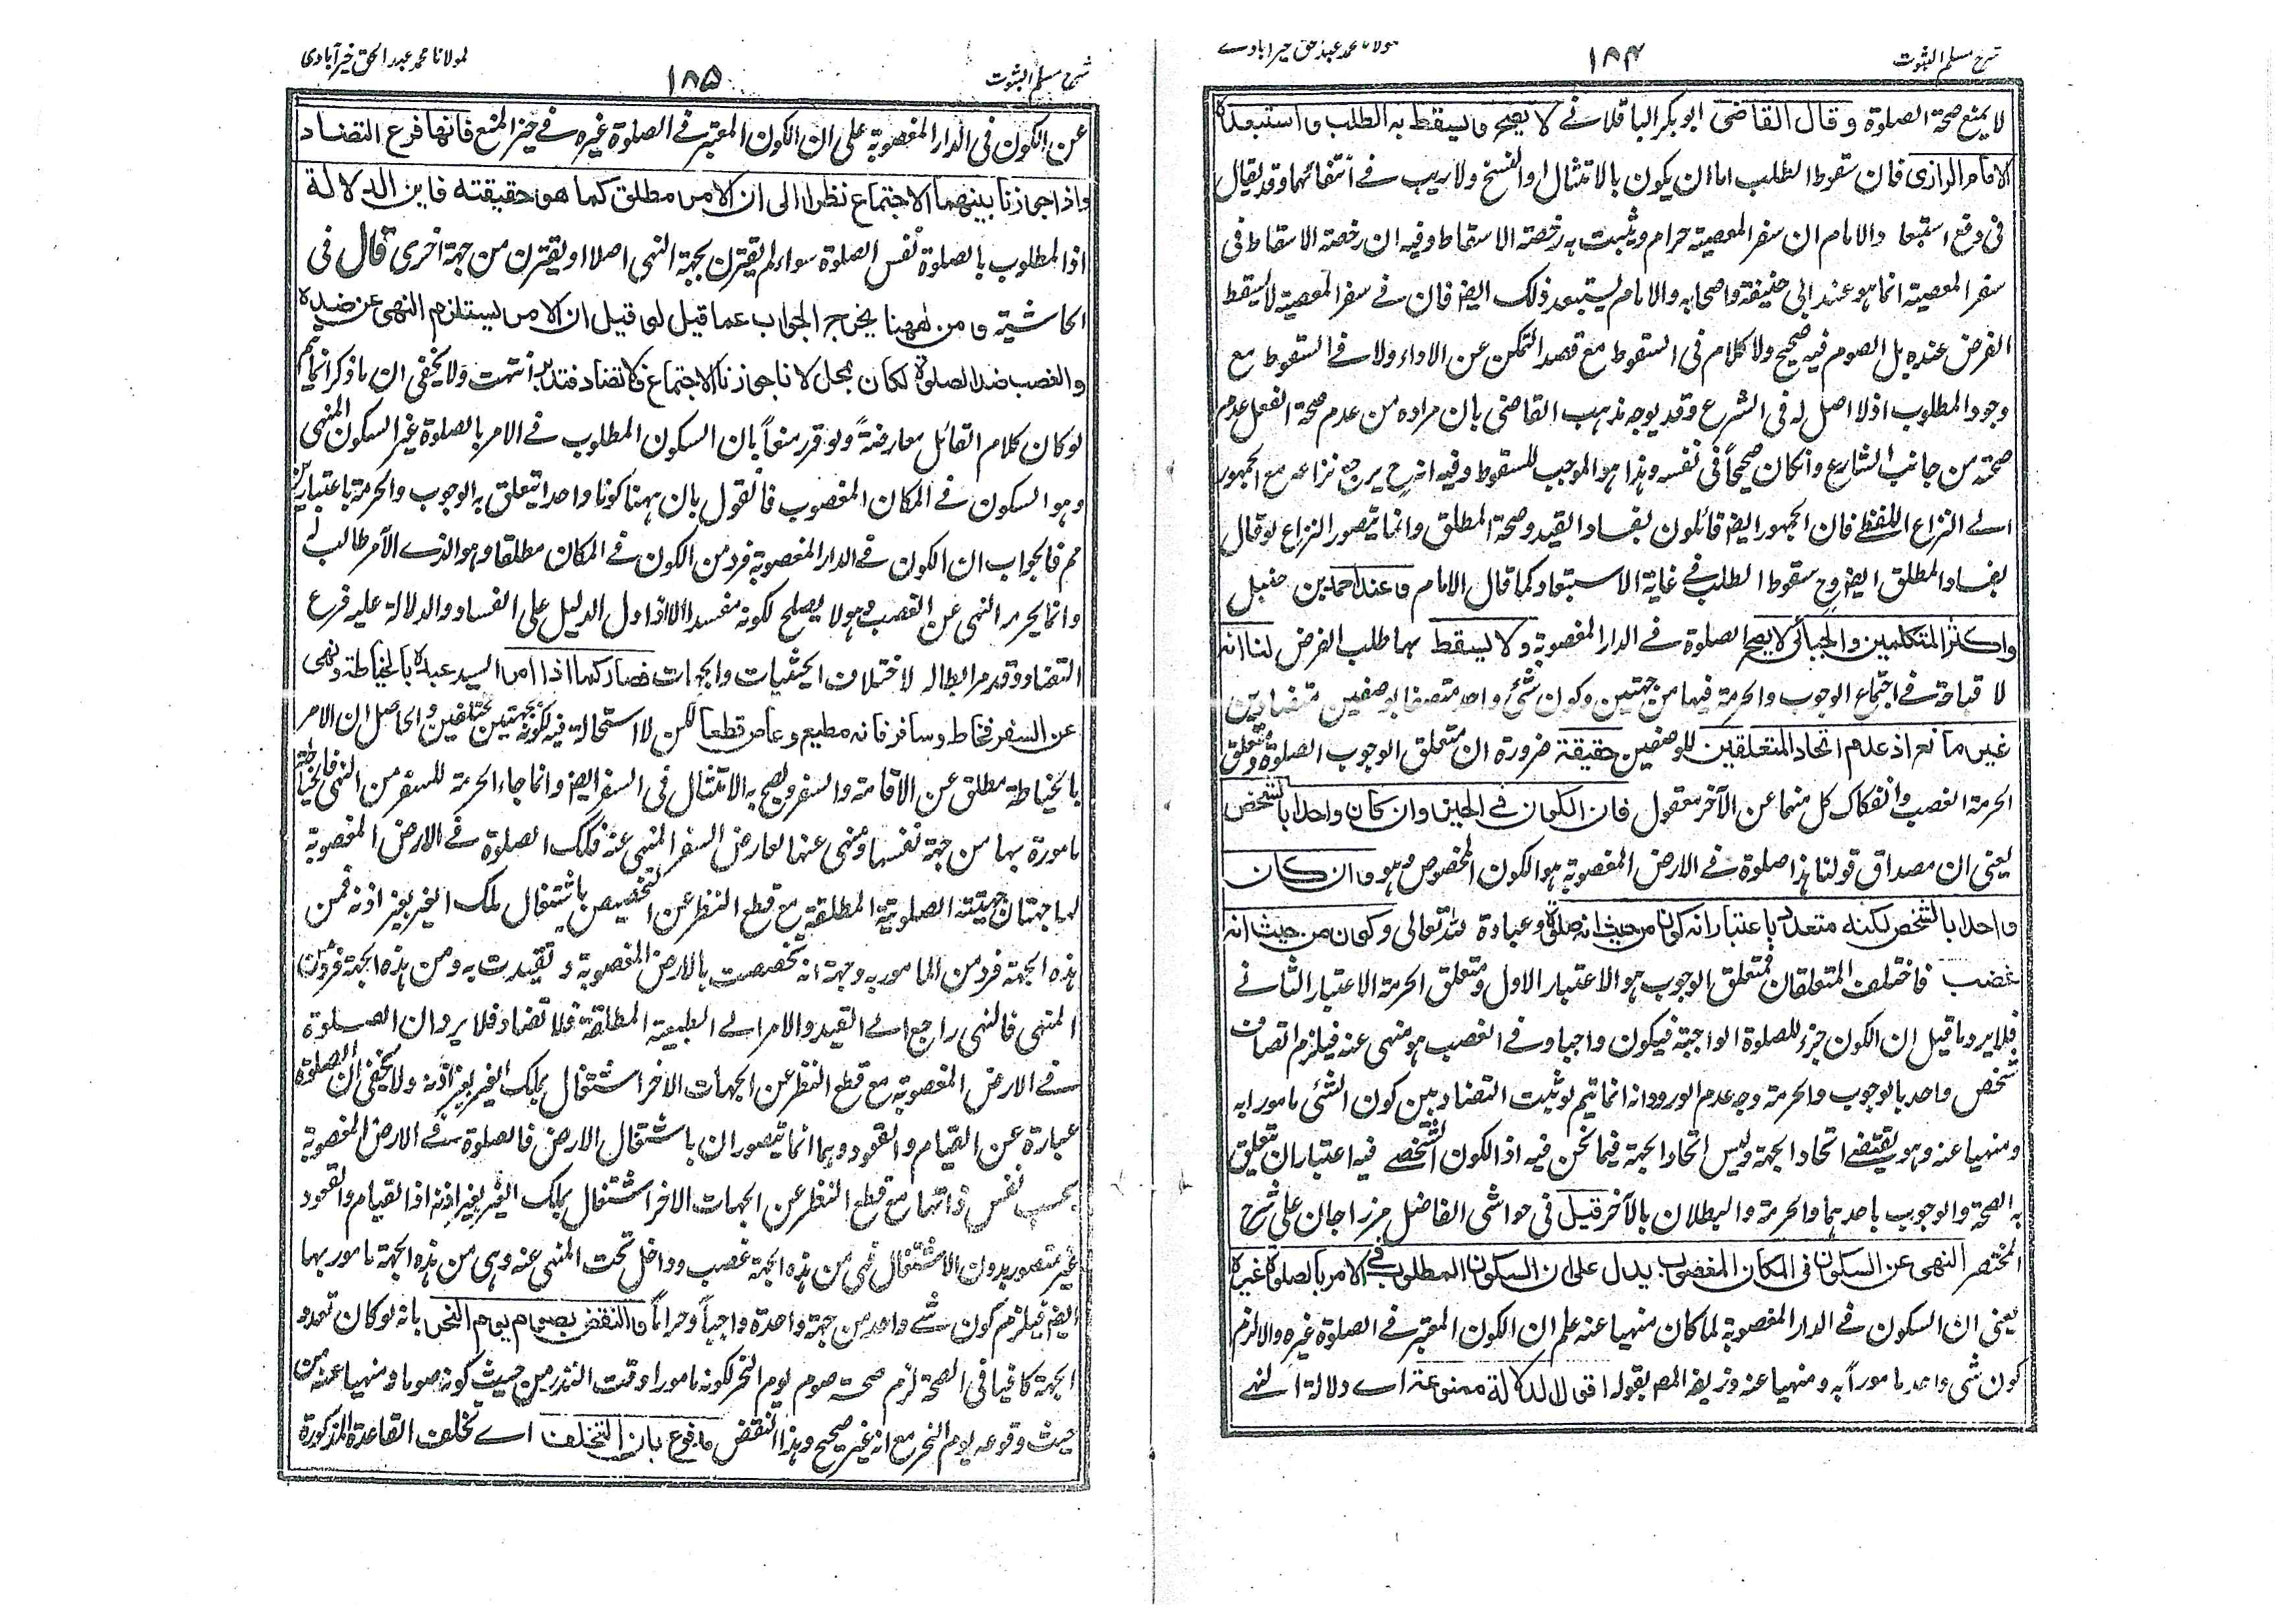 شرح مسلم الثبوت
۱۸۴
مولانا محمد عبد حق خیرابادے
لا یمنع صحة الصلوة وقال القاضی ابو بکر الباقلانے لا یصح ویسقط به الطلب واستبعده
الامام الرازی فان سقوط الطلب اما ان یکون بالامتثال او النسخ ولا ریب فے انتفائهما وقد یقال
فی دفع استبعاد الامام ان سفر المعصیة حرام ویثبت به رخصة الاسقاط وفیه ان رخصة الاسقاط فی
سفر المعصیة انما هو عند ابی حنیفة واصحابه والامام یستبعد ذلک ایضا فان فے سفر المعصیة لا یسقط
الفرض عنده بل الصوم فیه صحیح ولا کلام فی السقوط مع قصد التمکن عن الاداء ولا فے السقوط مع
وجود المطلوب اذ لا اصل له فی الشرع وقد یوجه مذهب القاضی بان مراده من عدم صحة الفعل عدم
صحته من جانب الشارع وان کان صحیحاً فی نفسه وهذا هو الموجب للسقوط وفیه انه ح یرجع نزاعه مع الجمهور
الے النزاع اللفظے فان الجمهور ایضا قائلون بفساد القید وصحة المطلق وانما یتصور النزاع لو قال
بفساد المطلق ایضا وح سقوط الطلب فے غایة الاستبعاد کما قال الامام وعند احمد بن حنبل
واکثر المتکلمین والجبائی لا یصح الصلوة فے الدار المغصوبة ولا یسقط بها طلب الفرض لنا انه
لا قباحة فے اجتماع الوجوب والحرمة فیها من جهتین وکون شئ واحد متصفا بوصفین متضادین
غیر مانع اذ عدم اتحاد المتعلقین للوصفین حقیقة ضرورة ان متعلق الوجوب الصلوة ومتعلق
الحرمة الغصب وانفکاک کل منهما عن الآخر معقول فان الکون فے الحیز وان کان واحدا بالشخص
یعنی ان مصداق قولنا هذا صلوة فے الارض المغصوبة هو الکون المخصوص وهو وان کان
واحدا بالشخص لکنه متعدد باعتبار انه کون من حیث انه صلوة وعبادة لله تعالی وکون من حیث انه
غصب فاختلف المتعلقان فمتعلق الوجوب هو الاعتبار الاول ومتعلق الحرمة الاعتبار الثانے
فلا یرد ما قیل ان الکون جزء للصلوة الواجبة فیکون واجبا وفے الغصب هو منهی عنه فیلزم اتصاف
شخص واحد بالوجوب والحرمة وجه عدم الورود انه انما یتم لو ثبت التضاد بین کون الشئ مامورا به
ومنهیا عنه وهو یقتضے اتحاد الجهة ولیس اتحاد الجهة فیما نحن فیه اذ الکون الشخصے فیه اعتباران تعلق
به الصحة والوجوب باحدهما والحرمة والبطلان بالآخر قیل فی حواشی الفاضل مرزا جان علی شرح
المختصر النهی عن السکون فی المکان المغصوب یدل علی ان السکون المطلوب فے الامر بالصلوة غیره
یعنی ان السکون فے الدار المغصوبة لما کان منهیا عنه علم ان الکون المعتبر فے الصلوة غیره والا لزم
کون شئ واحد مامورا به ومنهیا عنه وزیفه المص بقوله اقول الدلالة ممنوعة اے دلالة النهے
شرح مسلم الثبوت
۱۸۵
لمولانا محمد عبد الحق خیرآبادی
عن الکون فی الدار المغصوبة علی ان الکون المعتبر فے الصلوة غیره فے حیز المنع فانها فرع التضاد
واذا جوزنا بینهما الاجتماع نظرا الی ان الامر مطلق کما هو حقیقته فاین الدلالة
اذ المطلوب بالصلوة نفس الصلوة سواء لم یقترن بجهة النهی اصلا او یقترن من جهة اخری قال فی
الحاشیة ومن ههنا یخرج الجواب عما قیل لو قیل ان الامر یستلزم النهی عن ضده
والغصب ضد الصلوة لکان محلا لانا جوزنا الاجتماع فلا تضاد فتدبر انتهت ولا یخفی ان ما ذکر انما یتم
لو کان کلام القائل معارضةً ولو قرر منعاً بان السکون المطلوب فے الامر بالصلوة غیر السکون المنهی
وهو السکون فے المکان المغصوب فالقول بان ههنا کونا واحدا تعلق به الوجوب والحرمة باعتبارین
مم فالجواب ان الکون فے الدار المغصوبة فرد من الکون فے المکان مطلقا وهو الذے الآمر طالب له
وانما یحرمه النهی عن الغصب وهو لا یصلح لکونه مفسدا الا اذا دل الدلیل علی الفساد والدلالة علیه فرع
التضاد وقد مر ابطاله لاختلاف الحیثیات والجهات فصار کما اذا امر السید عبده بالخیاطة ونهی
عن السفر فخاط وسافر فانه مطیع وعاص قطعا لکن لا استحالة فیه لکونه بجهتین مختلفین والحاصل ان الامر
بالخیاطة مطلق عن الاقامة والسفر ویصح به الامتثال فی السفر ایضا وانما جاء الحرمة للسفر من النهی فالخیاطة
مامورة بها من جهة نفسها ومنهی عنها لعارض السفر المنهی عنه فکذلک الصلوة فے الارض المغصوبة
لها جهتان جهة الصلوتیة المطلقة مع قطع النظر عن التخصیص باشتغال ملک الغیر بغیر اذنه فمن
هذه الجهة فرد من المامور به وجهة انه تخصصت بالارض المغصوبة وتقیدت به ومن هذه الجهة فرد من
المنهی فالنهی راجع الے القید والامر الے الطبیعة المطلقة فلا تضاد فلا یرد ان الصلوة
فے الارض المغصوبة مع قطع النظر عن الجهات الاخر اشتغال بملک الغیر بغیر اذنه ولا یخفی ان الصلوة
عبارة عن القیام والقعود وهما انما یتصوران باشتغال الارض فالصلوة فے الارض المغصوبة
بحسب نفس ذاتها مع قطع النظر عن الجهات الاخر اشتغال بملک الغیر بغیر اذنه اذ القیام والقعود
غیر متصور بدون الاشتغال فهی من هذه الجهة غصب وداخل تحت المنهی عنه وهی من هذه الجهة مامور بها
ایضا فیلزم کون شے واحد من جهة واحدة واجباً وحراماً والنقض بصوم یوم النحر بانه لو کان تعدد
الجهة کافیا فی الصحة لزم صحة صوم یوم النحر لکونه مامورا وقت النذر من حیث کونه صوما ومنهیا عنه من
حیث وقوعه یوم النحر مع انه غیر صحیح وهذا النقض مدفوع بان التخلف اے تخلف القاعدة المذکورة